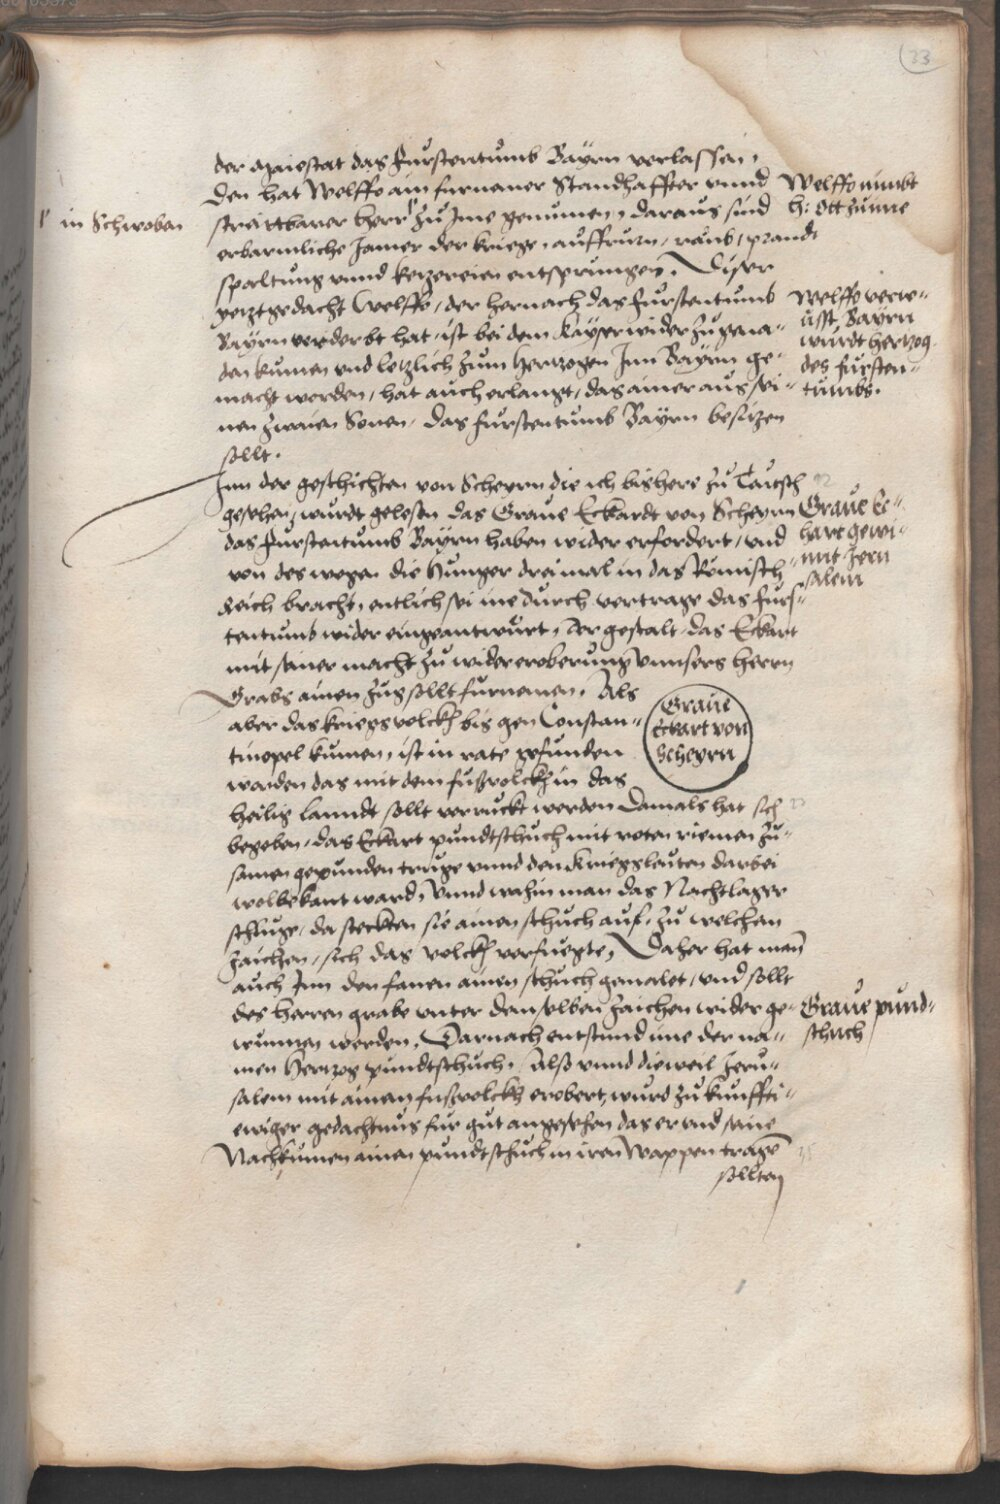 33
der Maiestat das Furstentumb Bayrn verlassen,
den hat Welffo ain furnemer Standhaffter unnd
streittbarer herr zu Ime genumen, daraus sind
erbarmliche Jamer der kriege, auffrurn, raub, prandt
spaltung unnd ketzereien entsprungen. Diser
yetztgedacht Welffo, der hernach das Furstentumb
Bayrn verderbt hat, ist bei dem Kayser wider zu gena-
den kumen und letzlich zum Hertzogen Inn Bayrn ge-
macht worden, hat auch erlangt, das ainer aus sei-
nen zwaien Sonen, das furstentumb Bayrn besitzen
sollt.
Inn der geschichten von Scheyrn die ich bishere zu Teutsch
gesehen, wurdt gelesen das Graue Eckardt von Scheyrn
das Furstentumb Bayrn haben wider erfordert, und
von des wegen die Hunger dreimal in das Römisch
Reich bracht, entlich sei ine durch vertrage das furs-
tentumb wider eingeantwurt, der gestalt, das Eckart
mit seiner macht zu widereroberung unnsers herrn
Grabs ainen zug sollt furnemen. Als
aber das kriegsvolckh bis gen Constan-
tinopel kumen, ist in rate gefunden
worden das mit dem fußvolckh in das
heilig lanndt sollt verruckt werden Damals hat sich
begeben, das Eckart pundtschuch mit roten riemen zu-
samen gepunden truge unnd den kriegsleuten darbei
wolbekant ward, Unnd wahin man das Nachtlager
schluge, da steckten sie ainen schuch auf, zu welchem
zaichen, sich das volckh verfuegte, Daher hat man
auch Inn den fanen ainen schuch gemalet, und sollt
des herren grabe unter dem selben zaichen wider ge-
wunnen werden, Darnach entstund ime der na-
men Hertzog pundtschuch. Also unnd dieweil Jeru-
salem mit ainem fußvolckh erobert, wurd zu kunffti-
ewiger gedachtnus fur gut angesehen das er und seine
Nachkumen ainen pundtschuch in iren Wappen trage
sollten
in Schwoben
Welffo nimbt
h: Ott zu ime
Welffo verw-
üsst Bayrn
wurdt hertzog
des fursten-
tumbs.
Graue Ec-
hart gewi-
nnt Jeru
salem
Graue
Eckart von
Scheyrn
Graue pund-
schuch